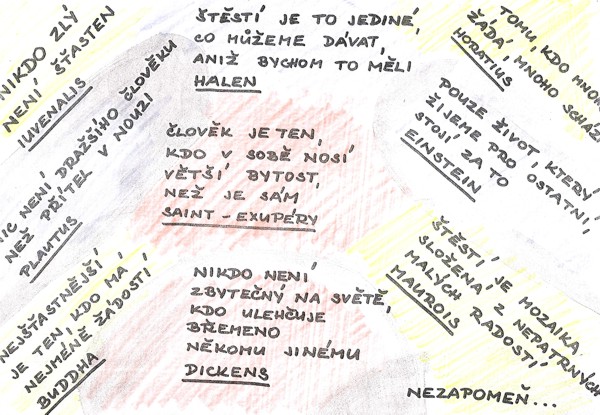 NIKDO ZLÝ
NENÍ ŠŤASTEN
IUVENALIS
ŠTĚSTÍ JE TO JEDINÉ,
CO MŮŽEME DÁVAT,
ANIŽ BYCHOM TO MĚLI
HALEN
TOMU, KDO MNOHO
ŽÁDÁ, MNOHO SCHÁZÍ
HORATIUS
NIC NENÍ DRAŽŠÍHO ČLOVĚKU
NEŽ PŘÍTEL V NOUZI
PLAUTUS
ČLOVĚK JE TEN,
KDO V SOBĚ NOSÍ
VĚTŠÍ BYTOST,
NEŽ JE SÁM
SAINT-EXUPÉRY
POUZE ŽIVOT, KTERÝ
ŽIJEME PRO OSTATNÍ,
STOJÍ ZA TO
EINSTEIN
NEJŠŤASTNĚJŠÍ
JE TEN, KDO MÁ
NEJMÉNĚ ŽÁDOSTÍ
BUDDHA
NIKDO NENÍ
ZBYTEČNÝ NA SVĚTĚ,
KDO ULEHČUJE
BŘEMENO
NĚKOMU JINÉMU
DICKENS
ŠTĚSTÍ JE MOZAIKA
SLOŽENÁ Z NEPATRNÝCH
MALÝCH RADOSTÍ
MAUROIS
NEZAPOMEŇ...